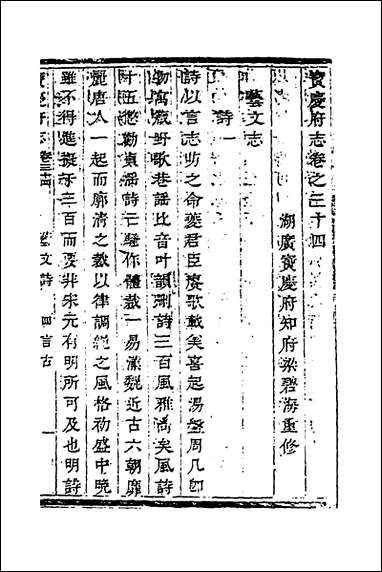 寶慶府志卷之三十四
湖廣寶慶府知府梁碧海重修
藝文志
詩一
詩以言志昉之命夔君臣賡歌載矣喜起湯盤周几卽
物寓歌野歌巷謡比音叶韻刪詩三百風雅尚矣風詩
十五
騷作體裁一易漢魏近古六朝靡
麗唐人一起而廓清之裁以律調範之風格初盛中晚
雖不得進擬于三百而要非宋元有明所可及也明詩
寶慶府志 卷三十四 藝文詩 四言古 一